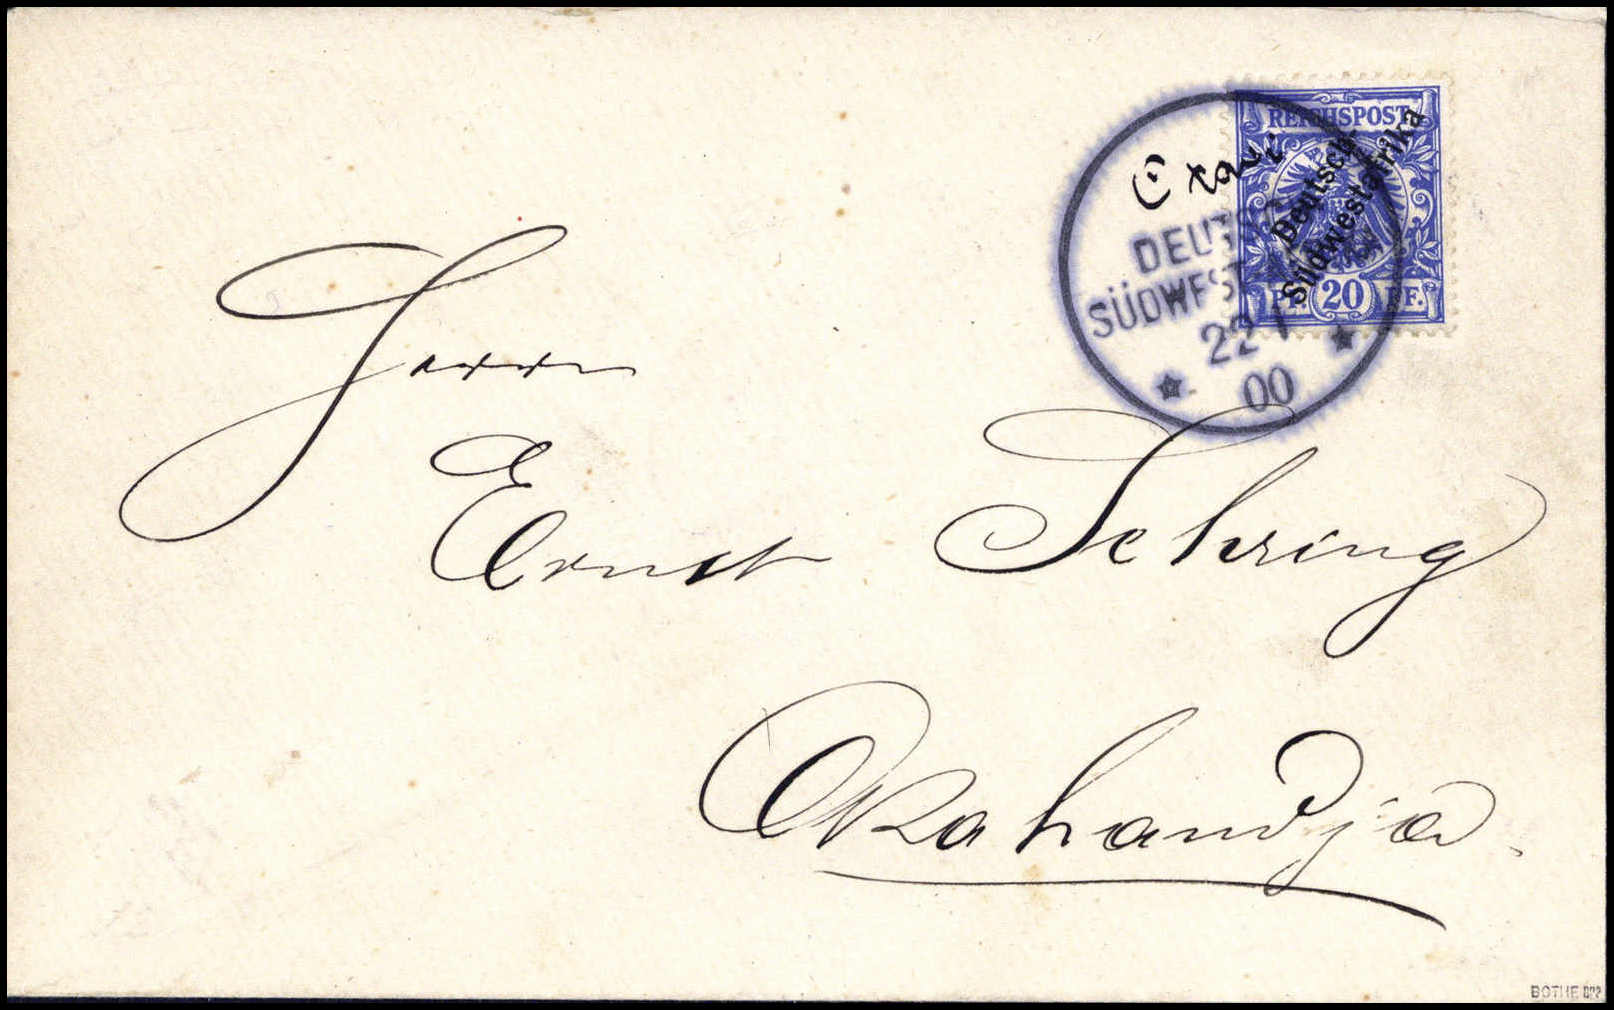 REICHSPOST
Deutsch-
Südwestafrika
PF. 20 PF.
DEUTSC
SÜDWEST
22 /
00
Herrn
Ernst Sehring
Okahandja.
BOTHE BPP